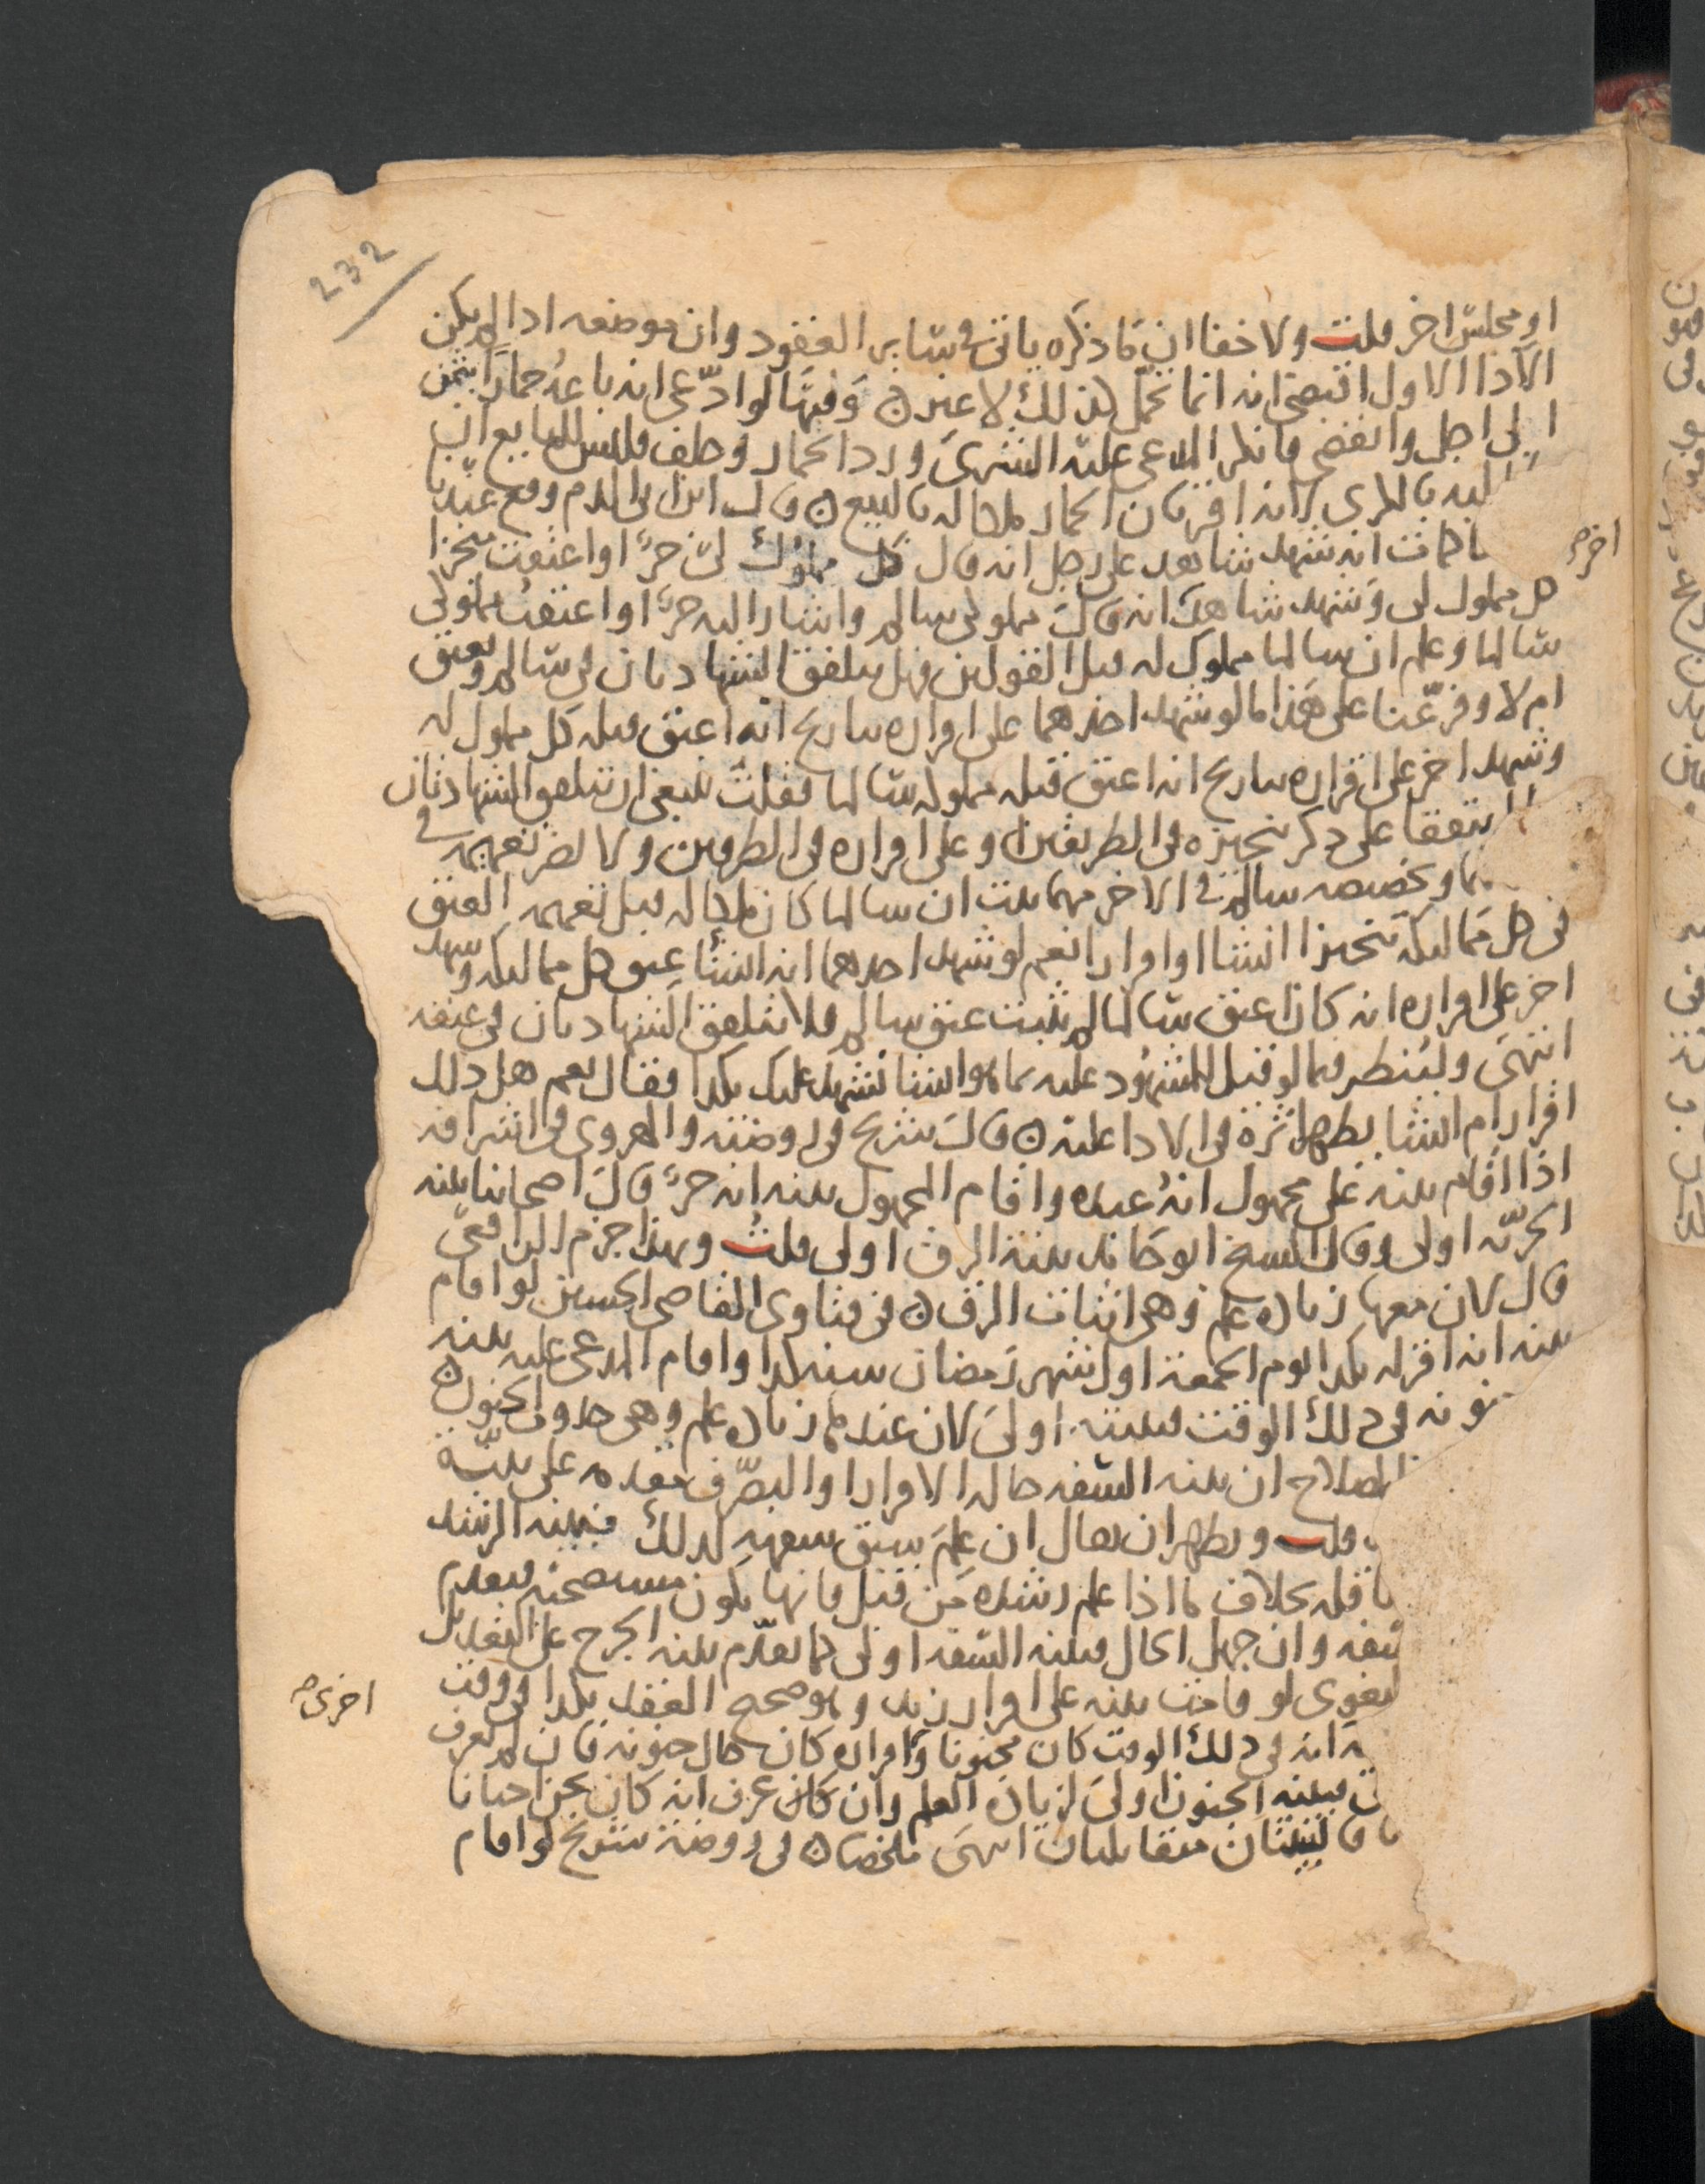 232
او مجلس اخر قلت ولا خفا ان ما ذكره ياتي في ساير العقود وان موضعه اذا لم يكن
الادا الاول اقتضى انه انما تحمل كذلك لا غير ه وفيها لو ادّعى انه باعه حمارا بثمن
الى اجل وانقضى فانكر المدعى عليه الشرى ورد الحمار وحلف فليس للبايع ان
اليه بالكرى لانه اقر بان الحمار ملكا له بالبيع ه قال ابن ابي الدم وقع عندنا
بحماة انه شهد شاهد على رجل انه قال كل مملوك لي حرٌّ او اعتقت منجزا
كل مملوك لي وشهد شاهد انه قال مملوكي سالم واشار اليه حرٌّ او اعتقت مملوكي
سالما وعلم ان سالما مملوك له قبل القولين فهل تتلفق الشهادتان في سالم ويعتق
ام لا وفرّعنا على هذا ما لو شهد احدهما على اقراره بتاريخ انه اعتق قبله كل مملوك له
وشهد اخر على اقراره بتاريخ انه اعتق قبله مملوكه سالما فقلت ينبغي ان تتلفق الشهادتان
اتفقا على ذكر تنجيزه في الطريقين او على اقراره في الطرفين ولا يضر تعميمه في
وتخصيصه سالم في الاخر مهما ثبت ان سالما كان ملكا له قبل تعميمه العتق
في كل مماليكه تنجيزا انشا او اقرارا نعم لو شهد احدهما انه انشا عتق كل مماليكه وشهد
اخر على اقراره انه كان اعتق سالما لم يثبت عتق سالم ولا تتلفق الشهادتان في عتقه
انتهى ولينظر فيما لو قيل للمشهود عليه بما هو انشا نشهد عليك بكذا فقال نعم هل ذلك
اقرار ام انشا يظهر اثره في الادا عليه ه قال شريح في روضته والهروي في اشرافه
اذا اقام بينه على مجهول انه عبده واقام المجهول بينه انه حرٌّ قال اصحابنا بينه
الحريّه اولى وقال الشيخ ابو حامد بينة الرق اولى قلت وبهذا جزم الرافعى
قال لان معها زيادة علم وهي اثبات الرق ه في فتاوى القاضي الحسين لو اقام
بينه انه اقر له بكذا يوم الجمعة اول شهر رمضان سنه كذا واقام المدعى عليه بينه
جنونه في ذلك الوقت فبينته اولى لان عندها زيادة علم وهي حدوث الجنون ه
الصلاح ان بينه السفه حاله الاقرار او التصرّف مقدمه على بيّنة
قلت ويظهر ان يقال ان علم سبق سفهه كذلك فبينه الرشد
ناقله بخلاف ما اذا علم رشده من قبل فانها تكون مستصحبه فيقدم
السفه وان جهل الحال فبينه السفه اولى كما تقدّم بينه الجرح على التعديل
البغوى لو قامت بينه على اقرار زيد وهو صحيح العقل بكذا في وقت
انه في ذلك الوقت كان مجنونا واقراره كان حال جنونه فان لم يعرف
فبينه الجنون اولى لزيادة العلم وان كان عرف انه كان يجن احيانا
فالبينتان متقابلتان انتهى ملخصا ه في روضة شريح لو اقام
اخر
اخرى